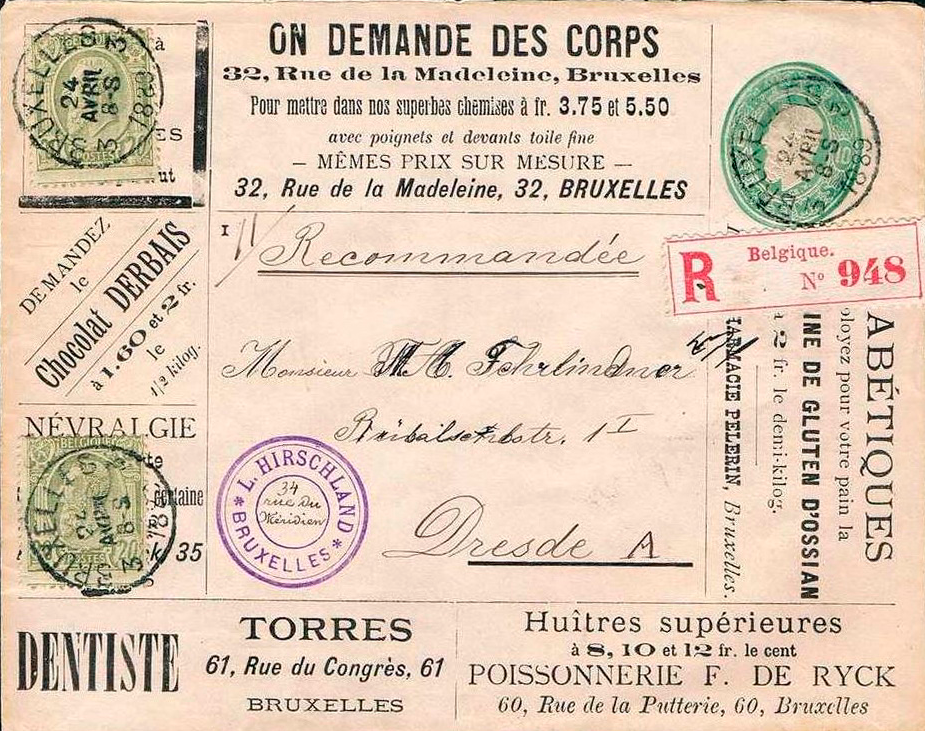 ON DEMANDE DES CORPS
32, Rue de la Madeleine, Bruxelles
Pour mettre dans nos superbes chemises à fr. 3.75 et 5.50
avec poignets et devants toile fine
— MÊMES PRIX SUR MESURE —
32, Rue de la Madeleine, 32, BRUXELLES
BRUXELLES 3
24
AVRIL
8-S
1889
POSTES
à
ES
ut
BRUXELLES
24
AVRIL
8-S
3 1889
10
Belgique.
R
N° 948
DEMANDEZ
le
Chocolat DERBAIS
à 1.60 et 2 fr.
le
1/2 kilog.
1
Recommandée
Monsieur Fehrlindner
1 I
Dresde A
L. HIRSCHLAND
34
rue du
Méridien
* BRUXELLES *
NÉVRALGIE
BELGIQUE
certaine
35
BRUXELLES
24
AVRIL
8-S
3 1889
POSTES 20
ABÉTIQUES
loyez pour votre pain la
INE DE GLUTEN D'OSSIAN
à 2 fr. le demi-kilog.
HARMACIE PELERIN, Bruxelles.
DENTISTE
TORRES
61, Rue du Congrès, 61
BRUXELLES
Huîtres supérieures
à 8, 10 et 12 fr. le cent
POISSONNERIE F. DE RYCK
60, Rue de la Putterie, 60, Bruxelles